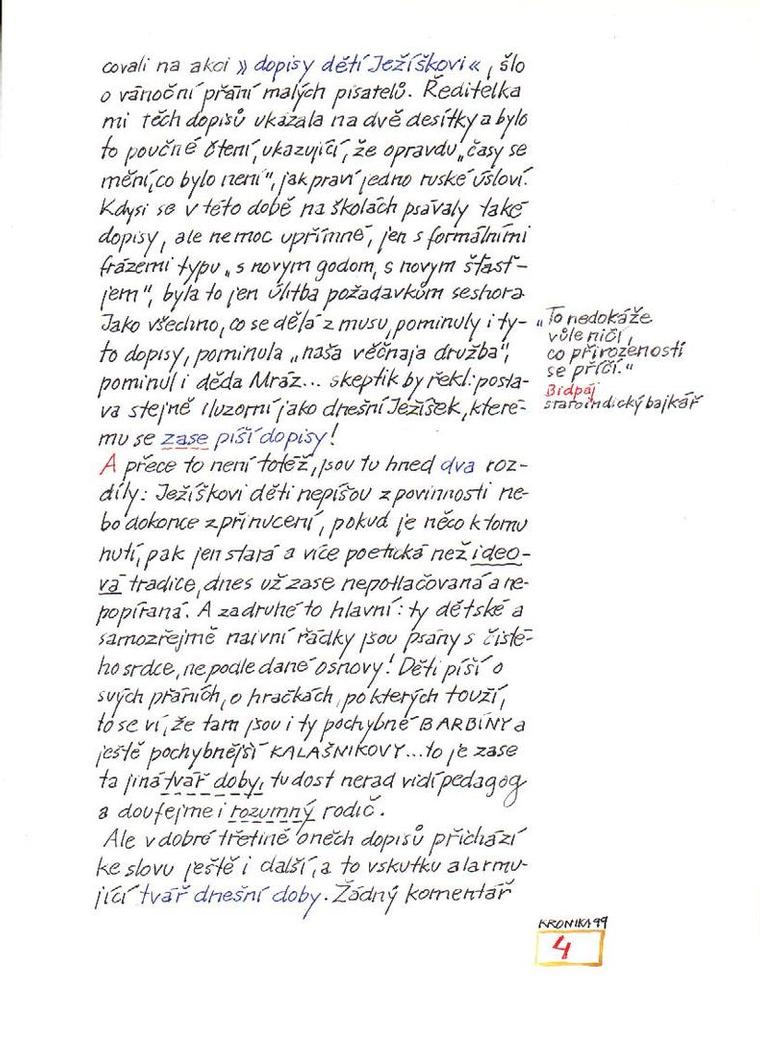 covali na akci » dopisy dětí Ježíškovi «, šlo
o vánoční přání malých pisatelů. Ředitelka
mi těch dopisů ukázala na dvě desítky a bylo
to poučné čtení, ukazující, že opravdu „časy se
mění, co bylo není", jak praví jedno ruské úsloví.
Kdysi se v této době na školách psávaly také
dopisy, ale nemoc upřímné, jen s formálními
frázemi typu „s novym godom, s novym šťast-
jem", byla to jen úlitba požadavkům seshora
Jako všechno, co se dělá z musu, pominuly i ty-
to dopisy, pominula „naša věčnaja družba",
pominul i děda Mráz... skeptik by řekl: posta-
va stejně iluzorní jako dnešní Ježíšek, které-
mu se zase píší dopisy!
A přece to není totéž, jsou tu hned dva roz-
díly: Ježíškovi děti nepíšou z povinnosti ne-
bo dokonce z přinucení, pokud je něco k tomu
nutí, pak jen stará a více poetická než ideo-
vá tradice, dnes už zase nepotlačovaná a ne-
popíraná. A za druhé to hlavní: ty dětské a
samozřejmě naivní řádky jsou psány s čisté-
ho srdce, ne podle dané osnovy! Děti píší o
svých přáních, o hračkách, po kterých touží,
to se ví, že tam jsou i ty pochybné BARBÍNY a
ještě pochybnější KALAŠNIKOVY...to je zase
ta jiná tvář doby, tu dost nerad vidí pedagog
a doufejme i rozumný rodič.
Ale v dobré třetině oněch dopisů přichází
ke slovu ještě i další, a to vskutku alarmu-
jící tvář dnešní doby. Žádný komentář
„To nedokáže
vůle ničí,
co přirozenosti
se příčí."
Bidpaj
staroindický bajkář
KRONIKA 99
4